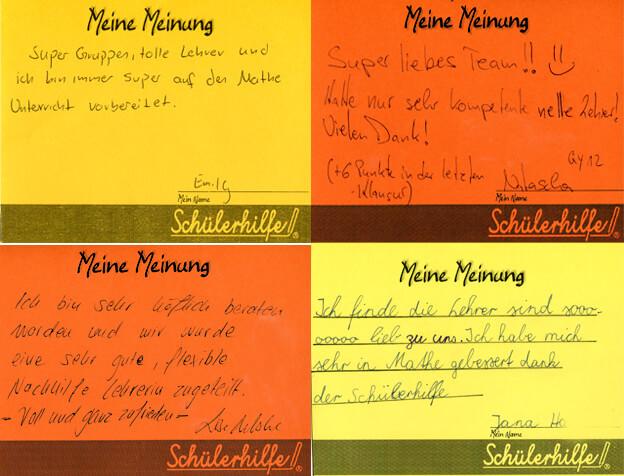 Meine Meinung
Super Gruppen, tolle Lehrer und
ich bin immer super auf den Mathe
Unterricht vorbereitet.
Emily
Mein Name
Schülerhilfe!®
Meine Meinung
Super liebes Team!! :)
Hatte nur sehr kompetente nette Lehrer!
Vielen Dank!
(+6 Punkte in der letzten
-Klausur)
Gy 12
Natascha
Mein Name
Schülerhilfe!®
Meine Meinung
Ich bin sehr höflich beraten
worden und mir wurde
eine sehr gute, flexible
Nachhilfe Lehrerin zugeteilt.
- Voll und ganz zufrieden -
Schülerhilfe!®
Meine Meinung
Ich finde die Lehrer sind sooo-
ooooo lieb zu uns. Ich habe mich
sehr in Mathe gebessert dank
der Schülerhilfe
Jana Ho
Mein Name
Schülerhilfe!®